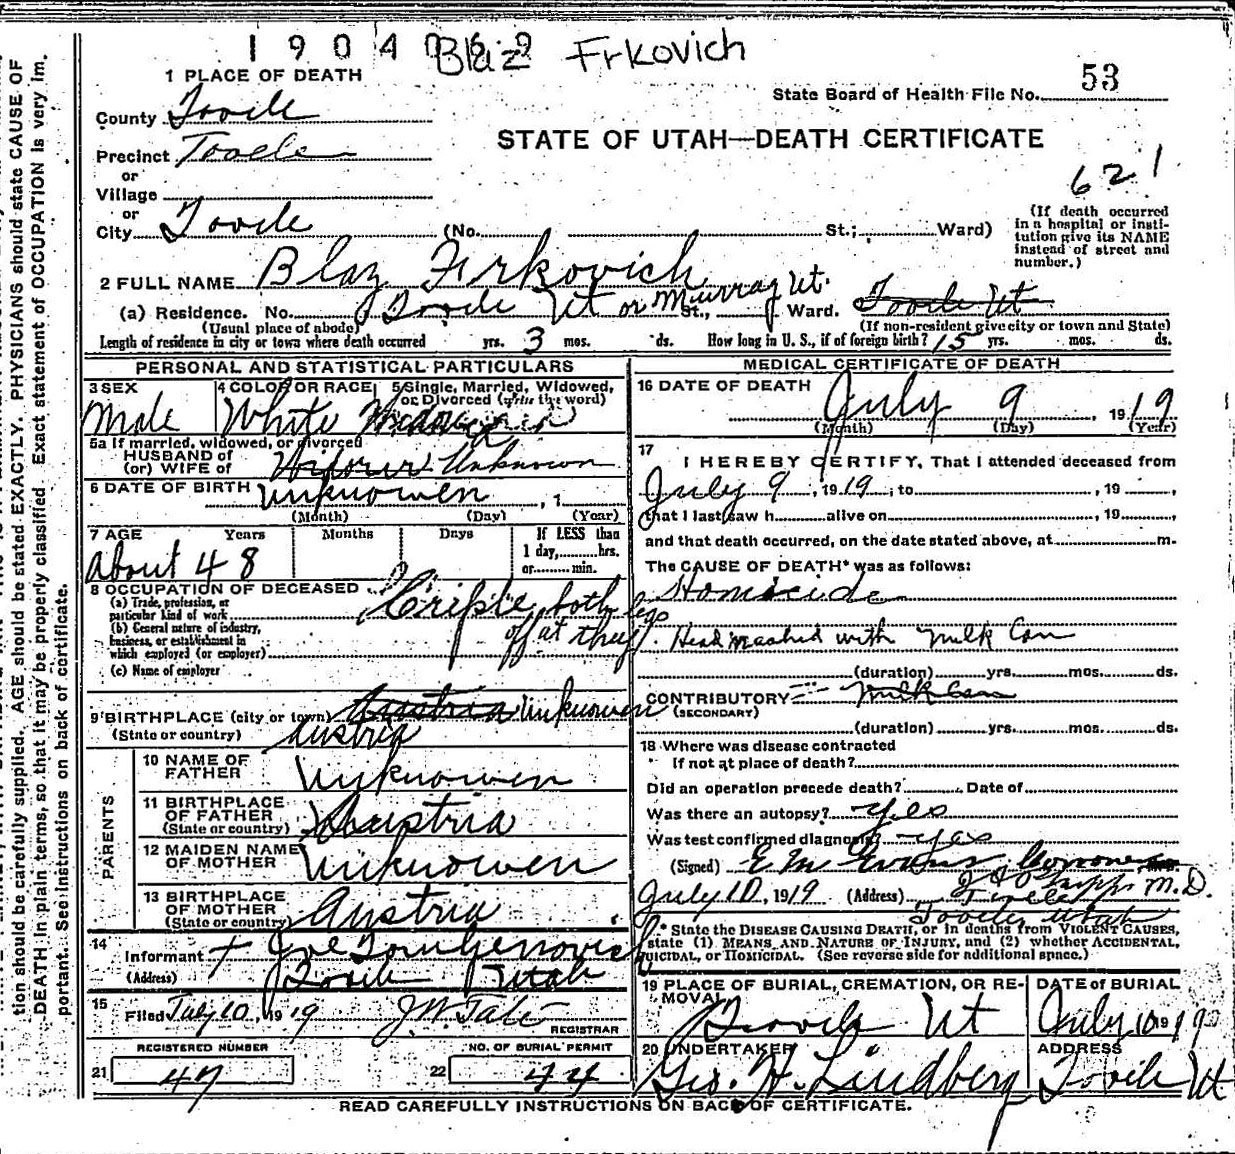 Blaz Frkovich
53
State Board of Health File No.
1 PLACE OF DEATH
County Tooele
STATE OF UTAH—DEATH CERTIFICATE
Precinct Tooele
or
Village
621
or
City Tooele (No. St.; Ward)
(If death occurred
in a hospital or insti-
tution give its NAME
instead of street and
number.)
2 FULL NAME Blaz Firkovich
(a) Residence. No. Tooele Ut or Murray Ut. St., Ward. Tooele Ut
(Usual place of abode) (If non-resident give city or town and State)
Length of residence in city or town where death occurred yrs. 3 mos. ds. How long in U. S., if of foreign birth? 15 yrs. mos. ds.
PERSONAL AND STATISTICAL PARTICULARS
3 SEX
Male
4 COLOR OR RACE
White
5 Single, Married, Widowed,
or Divorced (write the word)
5a If married, widowed, or divorced
HUSBAND of
(or) WIFE of Unknown
6 DATE OF BIRTH unknowen , 1
(Month) (Day) (Year)
7 AGE Years Months Days
About 48
If LESS than
1 day, hrs.
or min.
8 OCCUPATION OF DECEASED
(a) Trade, profession, or
particular kind of work Criple both legs
(b) General nature of industry,
business, or establishment in
which employed (or employer) off at thugh
(c) Name of employer
9 BIRTHPLACE (city or town) Austria unknowen
(State or country) Austria
PARENTS
10 NAME OF
FATHER Unknowen
11 BIRTHPLACE
OF FATHER
(State or country) Austria
12 MAIDEN NAME
OF MOTHER Unknowen
13 BIRTHPLACE
OF MOTHER
(State or country) Austria
14
Informant
(Address) Tooele Utah
15
Filed July 10, 1919 J.W. Tate
REGISTRAR
REGISTERED NUMBER
21 47
NO. OF BURIAL PERMIT
22 44
MEDICAL CERTIFICATE OF DEATH
16 DATE OF DEATH
July 9, 1919
(Month) (Day) (Year)
17
I HEREBY CERTIFY, That I attended deceased from
July 9, 1919; to , 19 ,
that I last saw h alive on , 19 ,
and that death occurred, on the date stated above, at m.
The CAUSE OF DEATH* was as follows:
Homicide
Head mashed with milk Can
(duration) yrs. mos. ds.
CONTRIBUTORY milk Can
(SECONDARY)
(duration) yrs. mos. ds.
18 Where was disease contracted
If not at place of death?
Did an operation precede death? Date of
Was there an autopsy? yes
Was test confirmed diagnosis? yes
(Signed) E M Evans Coroner
M.D.
July 10, 1919 (Address) Tooele
Tooele, Utah
* State the DISEASE CAUSING DEATH, or in deaths from VIOLENT CAUSES,
state (1) MEANS AND NATURE OF INJURY, and (2) whether ACCIDENTAL,
SUICIDAL, or HOMICIDAL. (See reverse side for additional space.)
19 PLACE OF BURIAL, CREMATION, OR RE-
MOVAL
Tooele Ut
DATE of BURIAL
July 10 19
20 UNDERTAKER
Geo. H. Lindberg
ADDRESS
Tooele Ut
READ CAREFULLY INSTRUCTIONS ON BACK OF CERTIFICATE.
tion should be carefully supplied. AGE should be stated EXACTLY. PHYSICIANS should state CAUSE OF
DEATH in plain terms, so that it may be properly classified. Exact statement of OCCUPATION is very im.
portant. See Instructions on back of certificate.